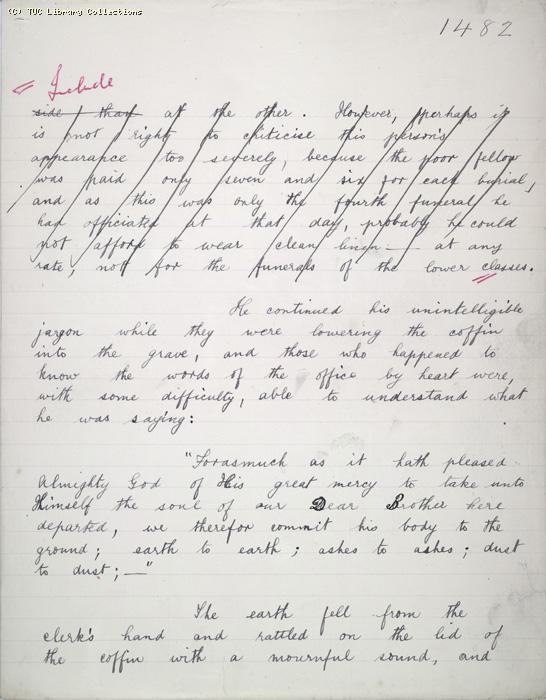 (C) TUC Library Collections
1482
Include
side than at the other. However, perhaps it
is not right to criticise this person's
appearance too severely, because the poor fellow
was paid only seven and six for each burial,
and as this was only the fourth funeral he
had officiated at that day, probably he could
not afford to wear clean linen — at any
rate, not for the funerals of the lower classes.
He continued his unintelligible
jargon while they were lowering the coffin
into the grave, and those who happened to
know the words of the office by heart were,
with some difficulty, able to understand what
he was saying:
"Forasmuch as it hath pleased
Almighty God of His great mercy to take unto
Himself the soul of our Dear Brother here
departed, we therefor commit his body to the
ground; earth to earth; ashes to ashes; dust
to dust; —"
The earth fell from the
clerk's hand and rattled on the lid of
the coffin with a mournful sound, and